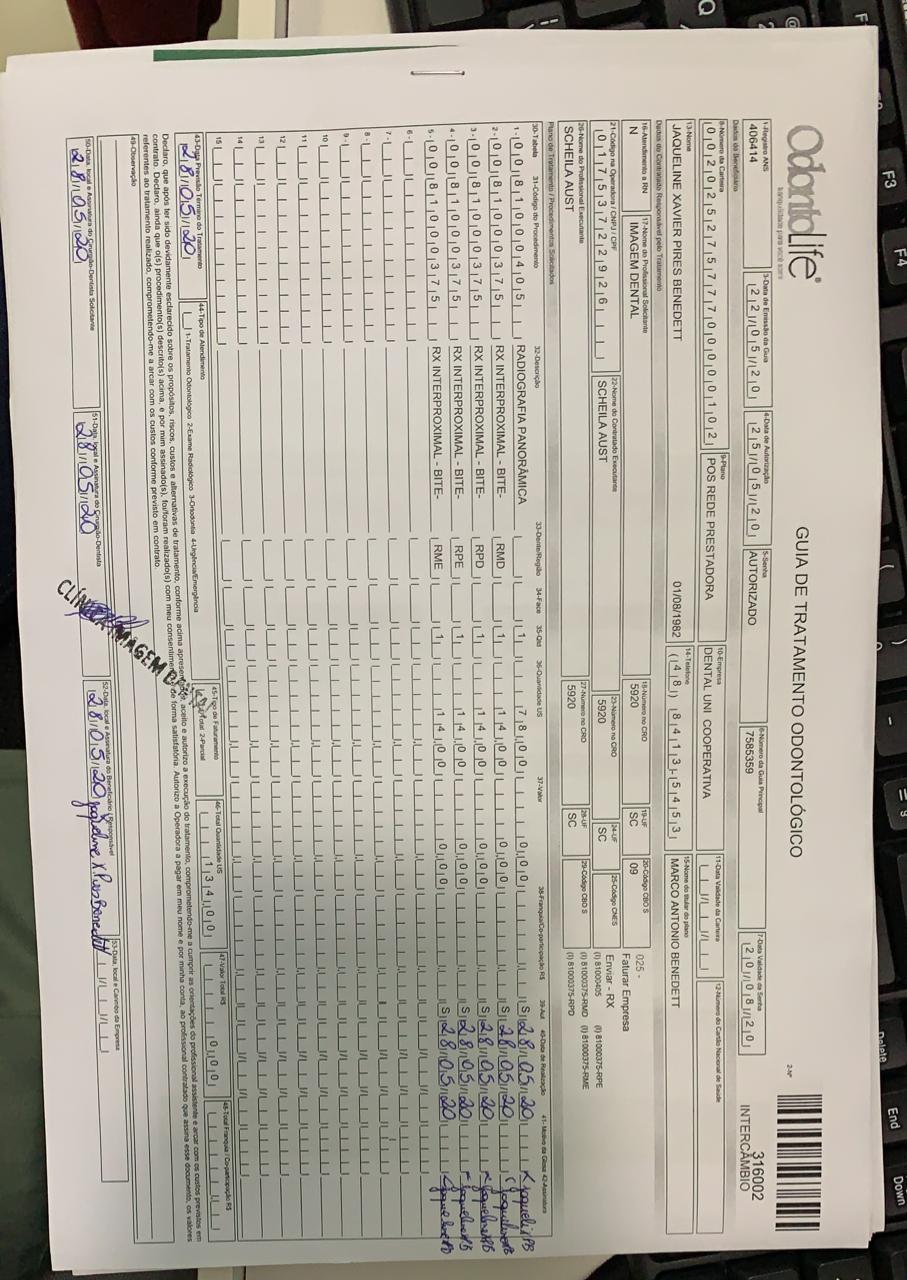 OdontoLife®
tranquilidade para você sorrir
GUIA DE TRATAMENTO ODONTOLÓGICO
2-Nº
316002
INTERCÂMBIO
1-Registro ANS
406414
3-Data de Emissão da Guia
22/05/20
4-Data de Autorização
25/05/20
5-Senha
AUTORIZADO
6-Número da Guia Principal
7585359
7-Data Validade da Senha
20/08/20
Dados do Beneficiário
8-Número da Carteira
00202527577700000102
9-Plano
POS REDE PRESTADORA
10-Empresa
DENTAL UNI COOPERATIVA
11-Data Validade da Carteira
12-Número do Cartão Nacional de Saúde
13-Nome
JAQUELINE XAVIER PIRES BENEDETT
01/08/1982
14-Telefone
(48) 8413-5453
15-Nome do titular do plano
MARCO ANTONIO BENEDETT
Dados do Contratado Responsável pelo Tratamento
16-Atendimento a RN
N
17-Nome do Profissional Solicitante
IMAGEM DENTAL
18-Número no CRO
5920
19-UF
SC
20-Código CBO S
09
025 -
Faturar Empresa
21-Código na Operadora / CNPJ / CPF
01753722926
22-Nome do Contratado Executante
SCHEILA AUST
23-Número no CRO
5920
24-UF
SC
25-Código CNES
Enviar - RX
(I) 81000405 (I) 81000375-RPE
26-Nome do Profissional Executante
SCHEILA AUST
27-Número no CRO
5920
28-UF
SC
29-Código CBO S
(I) 81000375-RMD (I) 81000375-RME
(I) 81000375-RPD
Plano de Tratamento / Procedimentos Solicitados
30-Tabela 31-Código do Procedimento 32-Descrição 33-Dente/Região 34-Face 35-Qtd 36-Quantidade US 37-Valor 38-Franquia/Co-participação R$ 39-Aut 40-Data de Realização 41- Motivo da Glosa 42-Assinatura
1- 00 81000405 RADIOGRAFIA PANORÂMICA 1 78,00 0,00 S 28/05/20
2- 00 81000375 RX INTERPROXIMAL - BITE- RMD 1 14,00 0,00 S 28/05/20
3- 00 81000375 RX INTERPROXIMAL - BITE- RPD 1 14,00 0,00 S 28/05/20
4- 00 81000375 RX INTERPROXIMAL - BITE- RPE 1 14,00 0,00 S 28/05/20
5- 00 81000375 RX INTERPROXIMAL - BITE- RME 1 14,00 0,00 S 28/05/20
6-
7-
8-
9-
10
11
12
13
14
15
43-Data Previsão Término do Tratamento
28/05/20
44-Tipo de Atendimento
1-Tratamento Odontológico 2-Exame Radiológico 3-Ortodontia 4-Urgência/Emergência
45-Tipo de Faturamento
2-Parcial
46-Total Quantidade US
134,00
47-Valor Total R$
0,00
48-Total Franquia / Co-participação R$
Declaro, que após ter sido devidamente esclarecido sobre os propósitos, riscos, custos e alternativas de tratamento, conforme acima aceito e autorizo a execução do tratamento, comprometendo-me a cumprir as orientações do profissional assistente e arcar com os custos previstos em
contrato. Declaro, ainda que o(s) procedimento(s) descrito(s) acima, e por mim assinado(s), foi/foram realizado(s) com meu consentimento de forma satisfatória. Autorizo a Operadora a pagar em meu nome e por minha conta, ao profissional contratado que assina esse documento, os valores
referentes ao tratamento realizado, comprometendo-me a arcar com os custos conforme previsto em contrato.
49-Observação
50-Data, local e Assinatura do Cirurgião-Dentista Solicitante
28/05/20
51-Data, local e Assinatura do Cirurgião-Dentista
28/05/20
CLÍNICA IMAGEM
52-Data, local e Assinatura do Beneficiário / Responsável
28/05/20 Jaqueline X. Pires Benedett
53-Data, local e Carimbo da Empresa
F3
F4
Q
Delete
End
Down